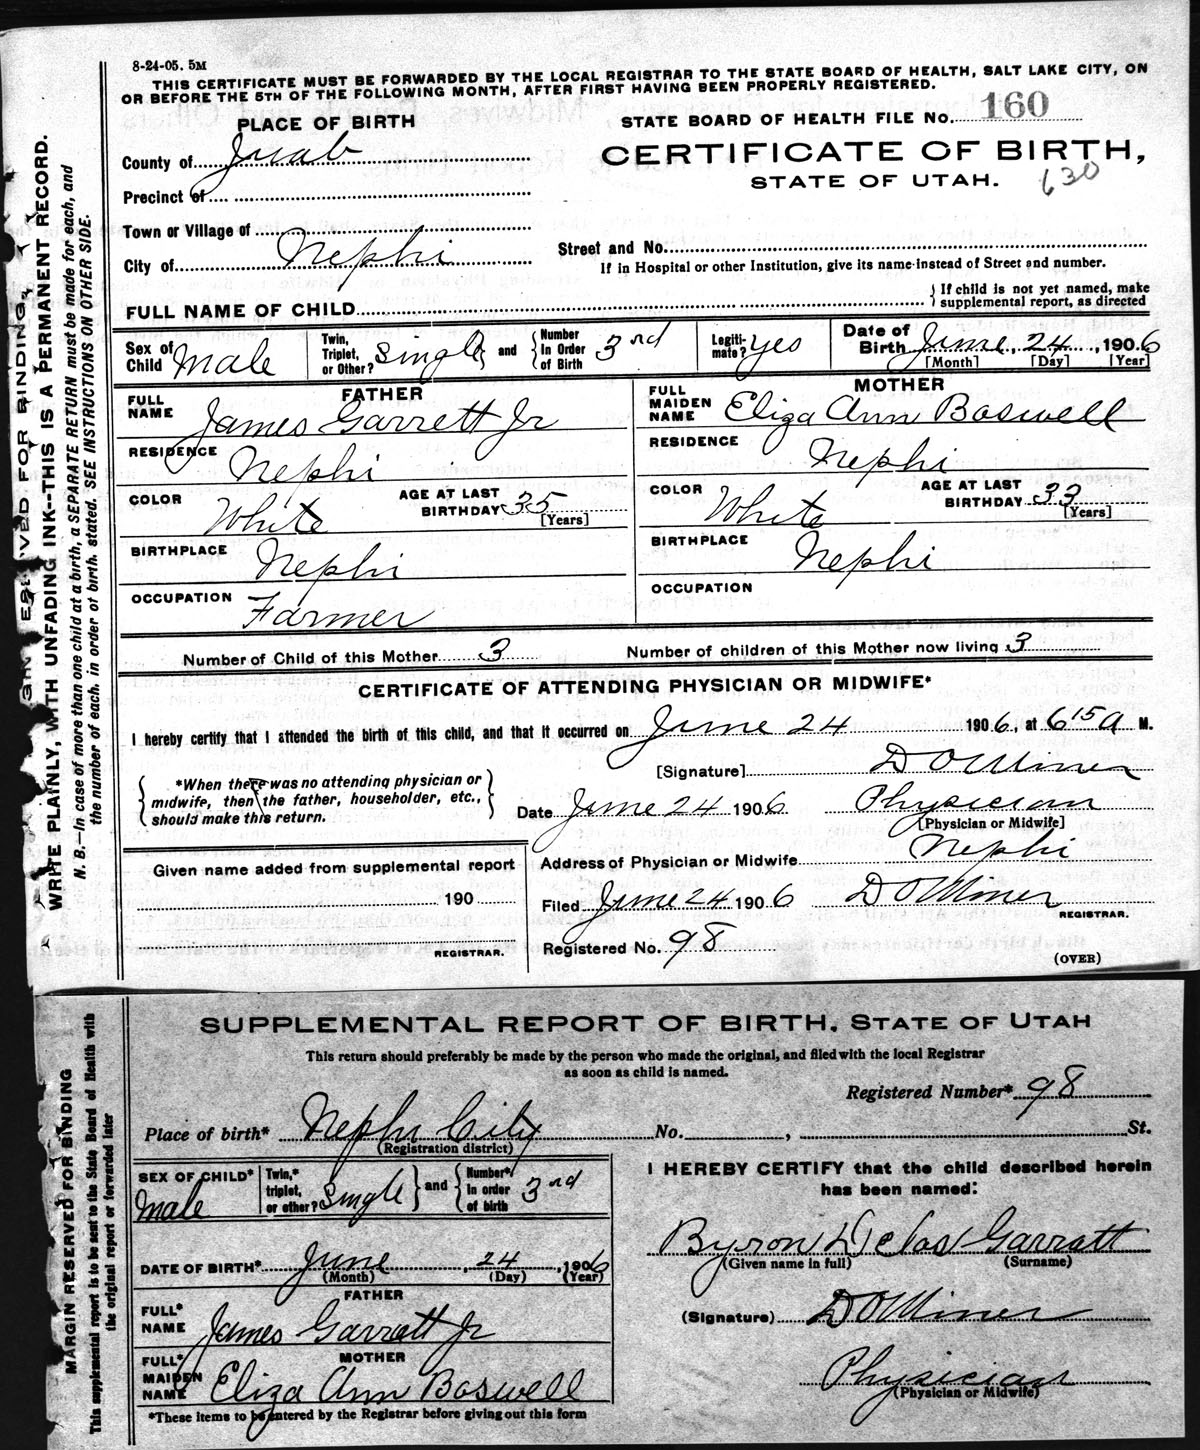 8-24-05. 5M
THIS CERTIFICATE MUST BE FORWARDED BY THE LOCAL REGISTRAR TO THE STATE BOARD OF HEALTH, SALT LAKE CITY, ON
OR BEFORE THE 5TH OF THE FOLLOWING MONTH, AFTER FIRST HAVING BEEN PROPERLY REGISTERED.
PLACE OF BIRTH
STATE BOARD OF HEALTH FILE No. 160
County of Juab
CERTIFICATE OF BIRTH,
STATE OF UTAH. 630
Precinct of
Town or Village of
City of Nephi
Street and No.
If in Hospital or other Institution, give its name instead of Street and number.
FULL NAME OF CHILD
If child is not yet named, make
supplemental report, as directed
Sex of Child Male
Twin, Triplet, or Other? Single and Number In Order of Birth 3rd
Legiti-mate? yes
Date of Birth June, 24, 1906
[Month] [Day] [Year]
FATHER
FULL NAME James Garrett Jr
RESIDENCE Nephi
COLOR White AGE AT LAST BIRTHDAY 35
[Years]
BIRTHPLACE Nephi
OCCUPATION Farmer
MOTHER
FULL MAIDEN NAME Eliza Ann Boswell
RESIDENCE Nephi
COLOR White AGE AT LAST BIRTHDAY 33
[Years]
BIRTHPLACE Nephi
OCCUPATION
Number of Child of this Mother 3 Number of children of this Mother now living 3
CERTIFICATE OF ATTENDING PHYSICIAN OR MIDWIFE*
I hereby certify that I attended the birth of this child, and that it occurred on June 24 1906, at 6 15 a M.
[Signature] D O Miner
*When there was no attending physician or
midwife, then the father, householder, etc.,
should make this return.
Date June 24 1906 Physician
[Physician or Midwife]
Address of Physician or Midwife Nephi
Given name added from supplemental report
190
REGISTRAR.
Filed June 24 1906 D O Miner
REGISTRAR.
Registered No. 98
(OVER)
WRITE PLAINLY, WITH UNFADING INK--THIS IS A PERMANENT RECORD.
N. B.—In case of more than one child at a birth, a SEPARATE RETURN must be made for each, and
the number of each, in order of birth, stated. SEE INSTRUCTIONS ON OTHER SIDE.
SUPPLEMENTAL REPORT OF BIRTH, STATE OF UTAH
This return should preferably be made by the person who made the original, and filed with the local Registrar
as soon as child is named.
Registered Number* 98
Place of birth* Nephi City No. , St.
(Registration district)
SEX OF CHILD* Male
Twin,* triplet, or other? Single and Number* in order of birth 3rd
DATE OF BIRTH* June, 24, 1906
(Month) (Day) (Year)
FATHER
FULL* NAME James Garrett Jr
MOTHER
FULL* MAIDEN NAME Eliza Ann Boswell
*These items to be entered by the Registrar before giving out this form
I HEREBY CERTIFY that the child described herein
has been named:
Byron Delos Garratt
(Given name in full) (Surname)
(Signature) D O Miner
Physician
(Physician or Midwife)
MARGIN RESERVED FOR BINDING
This supplemental report is to be sent to the State Board of Health with
the original report or forwarded later